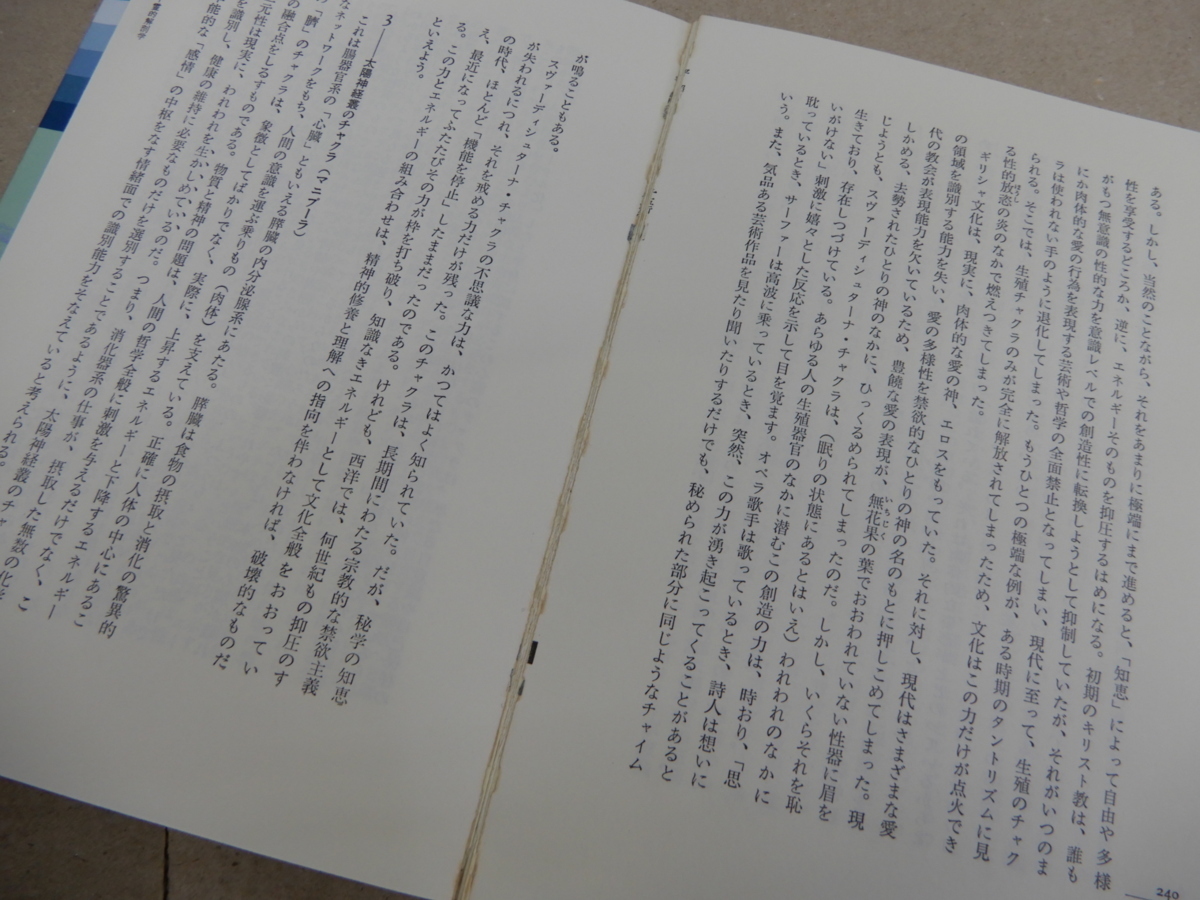 240
ある。しかし、当然のことながら、それをあまりに極端にまで進めると、「知恵」によって自由や多様
性を享受するどころか、逆に、エネルギーそのものを抑圧するはめになる。初期のキリスト教は、誰も
がもつ無意識の性的な力を意識レベルでの創造性に転換しようとして抑制していたが、それがいつのま
にか肉体的な愛の行為を表現する芸術や哲学の全面禁止となってしまい、現代に至って、生殖のチャク
ラは使われない手のように退化してしまった。もうひとつの極端な例が、ある時期のタントリズムに見
られる。そこでは、生殖チャクラのみが完全に解放されてしまったため、文化はこの力だけが点火でき
る性的放恣の炎のなかで燃えつきてしまった。
ギリシャ文化は、現実に、肉体的な愛の神、エロスをもっていた。それに対し、現代はさまざまな愛
の領域を識別する能力を失い、愛の多様性を禁欲的なひとりの神の名のもとに押しこめてしまった。現
代の教会が表現能力を欠いているため、豊饒な愛の表現が、無花果の葉でおおわれていない性器に眉を
しかめる、去勢されたひとりの神のなかに、ひっくるめられてしまったのだ。しかし、いくらそれを恥
じようとも、スヴァーディシュターナ・チャクラは、(眠りの状態にあるとはいえ)われわれのなかに
生きており、存在しつづけている。あらゆる人の生殖器官のなかに潜むこの創造の力は、時おり、「思
いがけない」刺激に嬉々とした反応を示して目を覚ます。オペラ歌手は歌っているとき、詩人は想いに
耽っているとき、サーファーは高波に乗っているとき、突然、この力が湧き起こってくることがあると
いう。また、気品ある芸術作品を見たり聞いたりするだけでも、秘められた部分に同じようなチャイム
が鳴ることもある。
スヴァーディシュターナ・チャクラの不思議な力は、かつてはよく知られていた。だが、秘学の知恵
が失われるにつれ、それを戒める力だけが残った。このチャクラは、長期間にわたる宗教的な禁欲主義
の時代、ほとんど「機能を停止」したままだったのである。けれども、西洋では、何世紀もの抑圧のす
え、最近になってふたたびその力が枠を打ち破り、知識なきエネルギーとして文化全般をおおってい
る。この力とエネルギーの組み合わせは、精神的修養と理解への指向を伴わなければ、破壊的なものだ
といえよう。
3——太陽神経叢のチャクラ(マニプーラ)
これは腸器官系の「心臓」ともいえる膵臓の内分泌腺系にあたる。膵臓は食物の摂取と消化の驚異的
なネットワークをもち、人間の意識を運ぶ乗りもの(肉体)を支えている。正確に人体の中心にあるこ
の「臍」のチャクラは、象徴としてばかりでなく、実際に、上昇するエネルギーと下降するエネルギー
の融合点をしるすものである。物質と精神の問題は、人間の哲学全般に刺激を与えるだけでなく、こ
元性は現実に、われわれを生かしめているのだ。つまり、消化器系の仕事が、摂取した無数の化
を識別し、健康の維持に必要なものだけを選別することであるように、太陽神経叢のチャ
能的な「感情」の中枢をなす情緒面での識別能力をそなえていると考えられる。